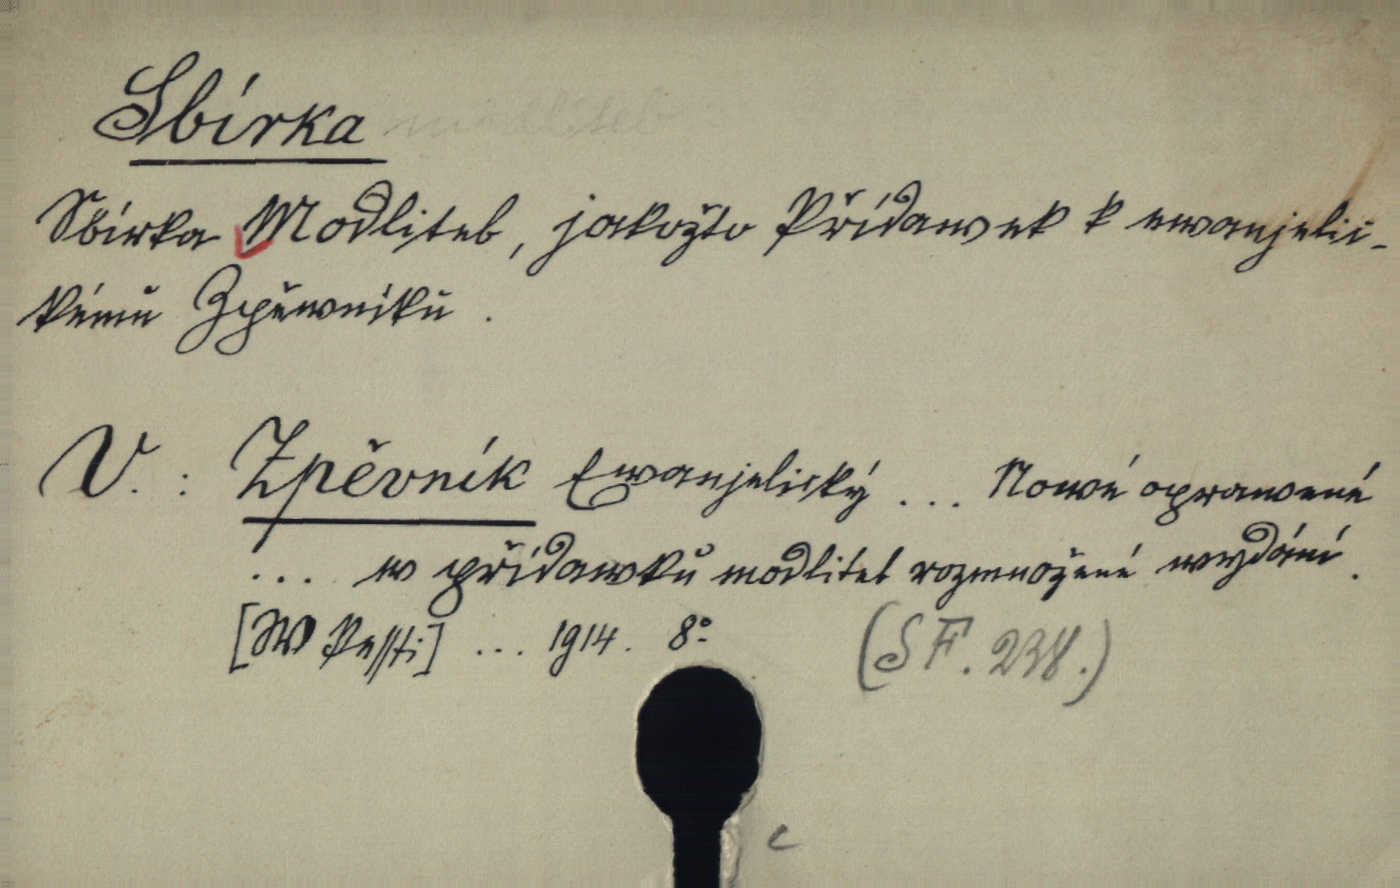 Sbírka modliteb
Sbírka Modliteb, jakožto Přídawek k ewanjelic-
kému Zpěwníku.
V.: Zpěvník Ewanjelický ... Nowé oprawené
... w přídawku modliteb rozmnožené wydání.
[W Pessti] ... 1914. 8°
(SF. 238.)
c